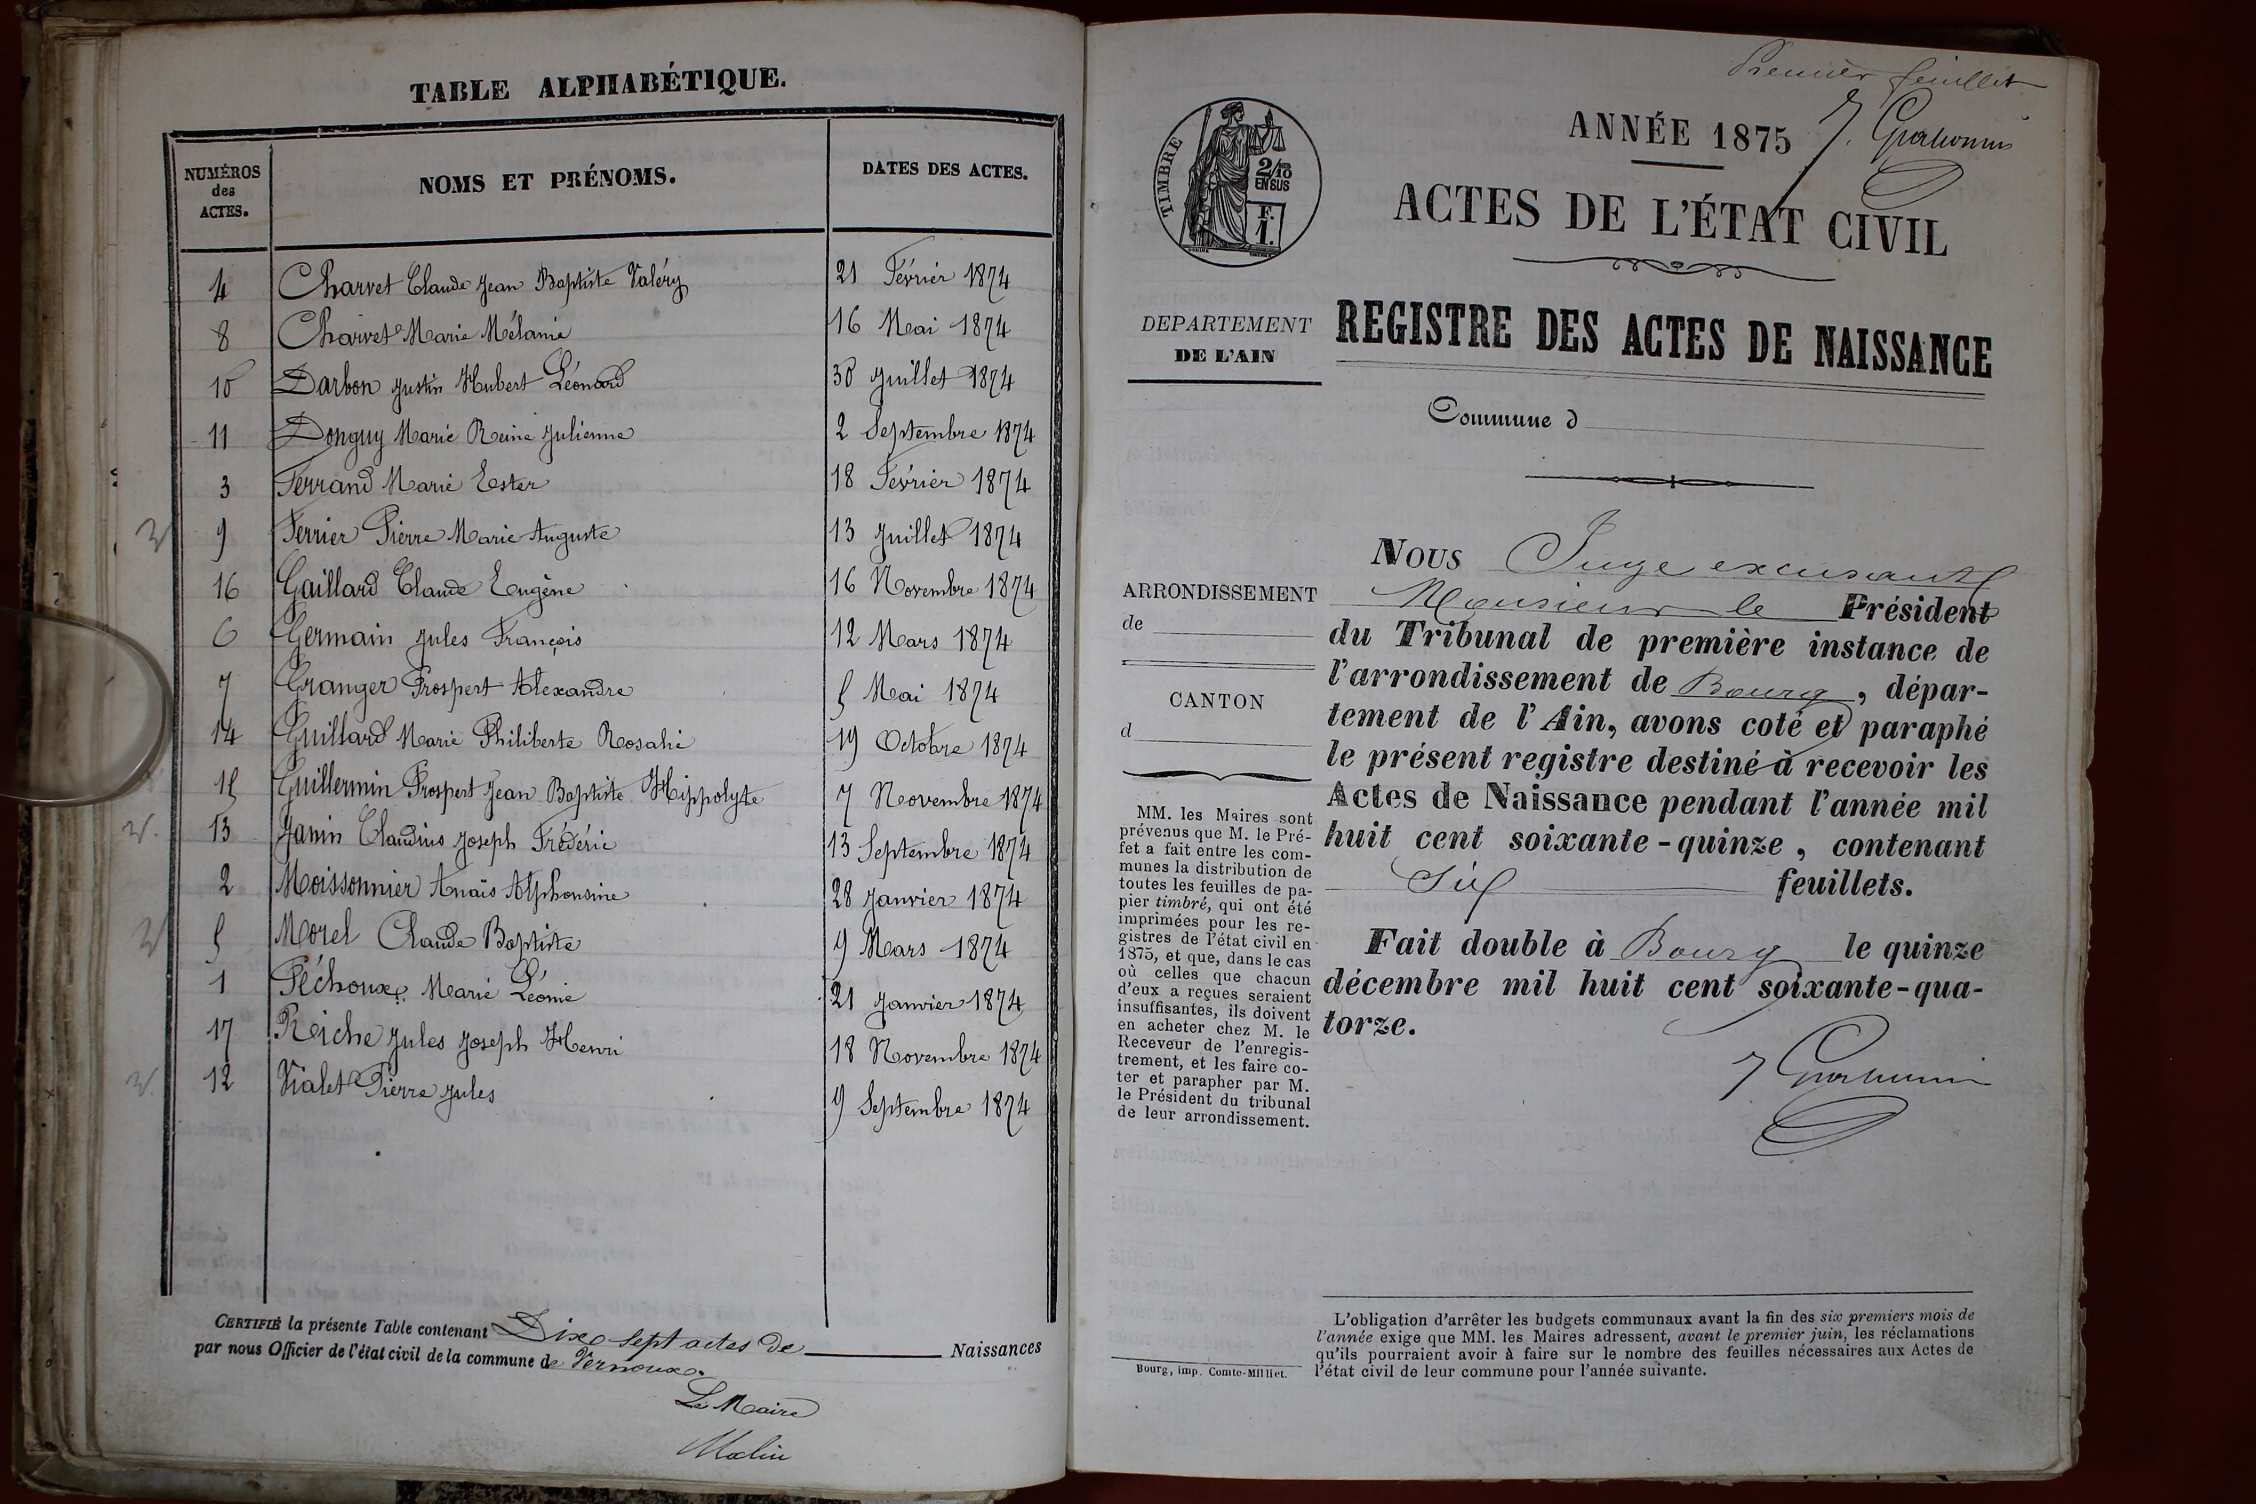 TABLE ALPHABÉTIQUE.
NUMÉROS des ACTES. NOMS ET PRÉNOMS. DATES DES ACTES.
4 Charvet Claude Jean Baptiste Valéry 21 Février 1874
8 Charvet Marie Mélanie 16 Mai 1874
10 Darbon Justin Hubert Léonard 30 Juillet 1874
11 Donguy Marie Reine Julienne 2 Septembre 1874
3 Ferrand Marie Ester 18 Février 1874
9 Ferrier Pierre Marie Auguste 13 Juillet 1874
16 Gaillard Claude Eugène 16 Novembre 1874
6 Germain Jules François 12 Mars 1874
7 Granger Prospert Alexandre 5 Mai 1874
14 Guillard Marie Philiberte Rosalie 19 Octobre 1874
15 Guillermin Prospert Jean Baptiste Hippolyte 7 Novembre 1874
13 Janin Claudius Joseph Frédéric 13 Septembre 1874
2 Moissonnier Anaïs Alphonsine 28 Janvier 1874
5 Morel Claude Baptiste 9 Mars 1874
1 Péchoux Marie Léonie 21 Janvier 1874
17 Reiche Jules Joseph Henri 18 Novembre 1874
12 Vialet Pierre Jules 9 Septembre 1874
CERTIFIÉ la présente Table contenant Dix sept actes de Naissances
par nous Officier de l'état civil de la commune de Vernoux.
Le Maire
Premier feuillet
TIMBRE
2/10
EN SUS
F.
1.
ANNÉE 1875
ACTES DE L'ÉTAT CIVIL
DEPARTEMENT
DE L'AIN
REGISTRE DES ACTES DE NAISSANCE
Commune d
ARRONDISSEMENT
de
CANTON
d
MM. les Maires sont
prévenus que M. le Pré-
fet a fait entre les com-
munes la distribution de
toutes les feuilles de pa-
pier timbré, qui ont été
imprimées pour les re-
gistres de l'état civil en
1875, et que, dans le cas
où celles que chacun
d'eux a reçues seraient
insuffisantes, ils doivent
en acheter chez M. le
Receveur de l'enregis-
trement, et les faire co-
ter et parapher par M.
le Président du tribunal
de leur arrondissement.
Bourg, imp. Comte-Milliet.
NOUS Juge excusant
Monsieur le Président
du Tribunal de première instance de
l'arrondissement de Bourg, dépar-
tement de l'Ain, avons coté et paraphé
le présent registre destiné à recevoir les
Actes de Naissance pendant l'année mil
huit cent soixante-quinze, contenant
Six feuillets.
Fait double à Bourg le quinze
décembre mil huit cent soixante-qua-
torze.
L'obligation d'arrêter les budgets communaux avant la fin des six premiers mois de
l'année exige que MM. les Maires adressent, avant le premier juin, les réclamations
qu'ils pourraient avoir à faire sur le nombre des feuilles nécessaires aux Actes de
l'état civil de leur commune pour l'année suivante.